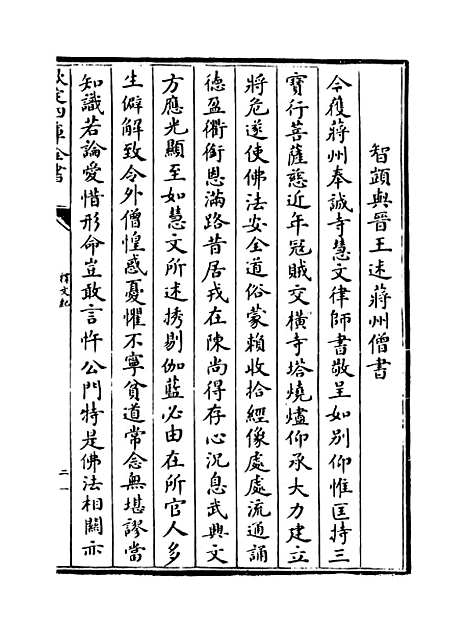 智顗與晉王述蔣州僧書
今獲蔣州奉誠寺慧文律師書敬呈如别仰惟匡持三
寶行菩薩慈近年冦賊交横寺塔燒燼仰承大力建立
將危遂使佛法安全道俗蒙賴收拾經像處處流通誦
德盈衢銜恩滿路昔居戎在陳尚得存心況息武興文
方應光顯至如慧文所述撈剔伽藍必由在所官人多
生僻解致令外僧惶惑憂懼不寧貧道常念無堪謬當
知識若論愛惜形命豈敢言忤公門特是佛法相關亦
欽定四庫全書
釋文紀
二一